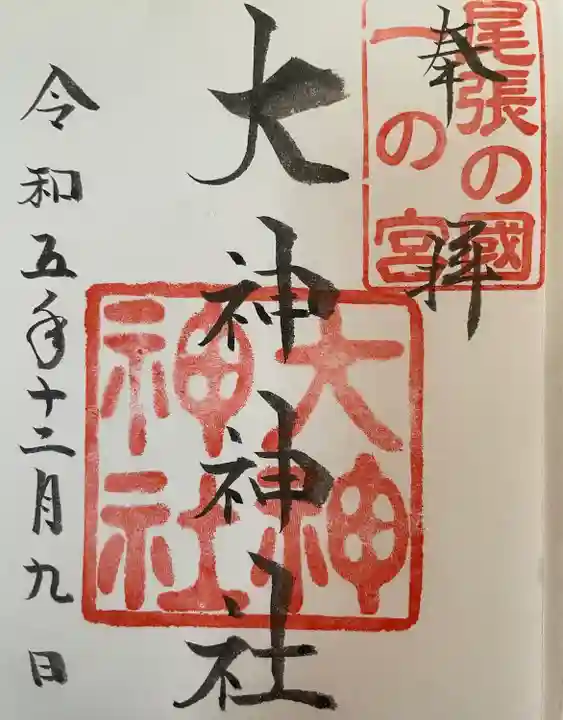 奉拝
尾張の國
一の宮
大神神社
大神
神社
令和五年十二月九日